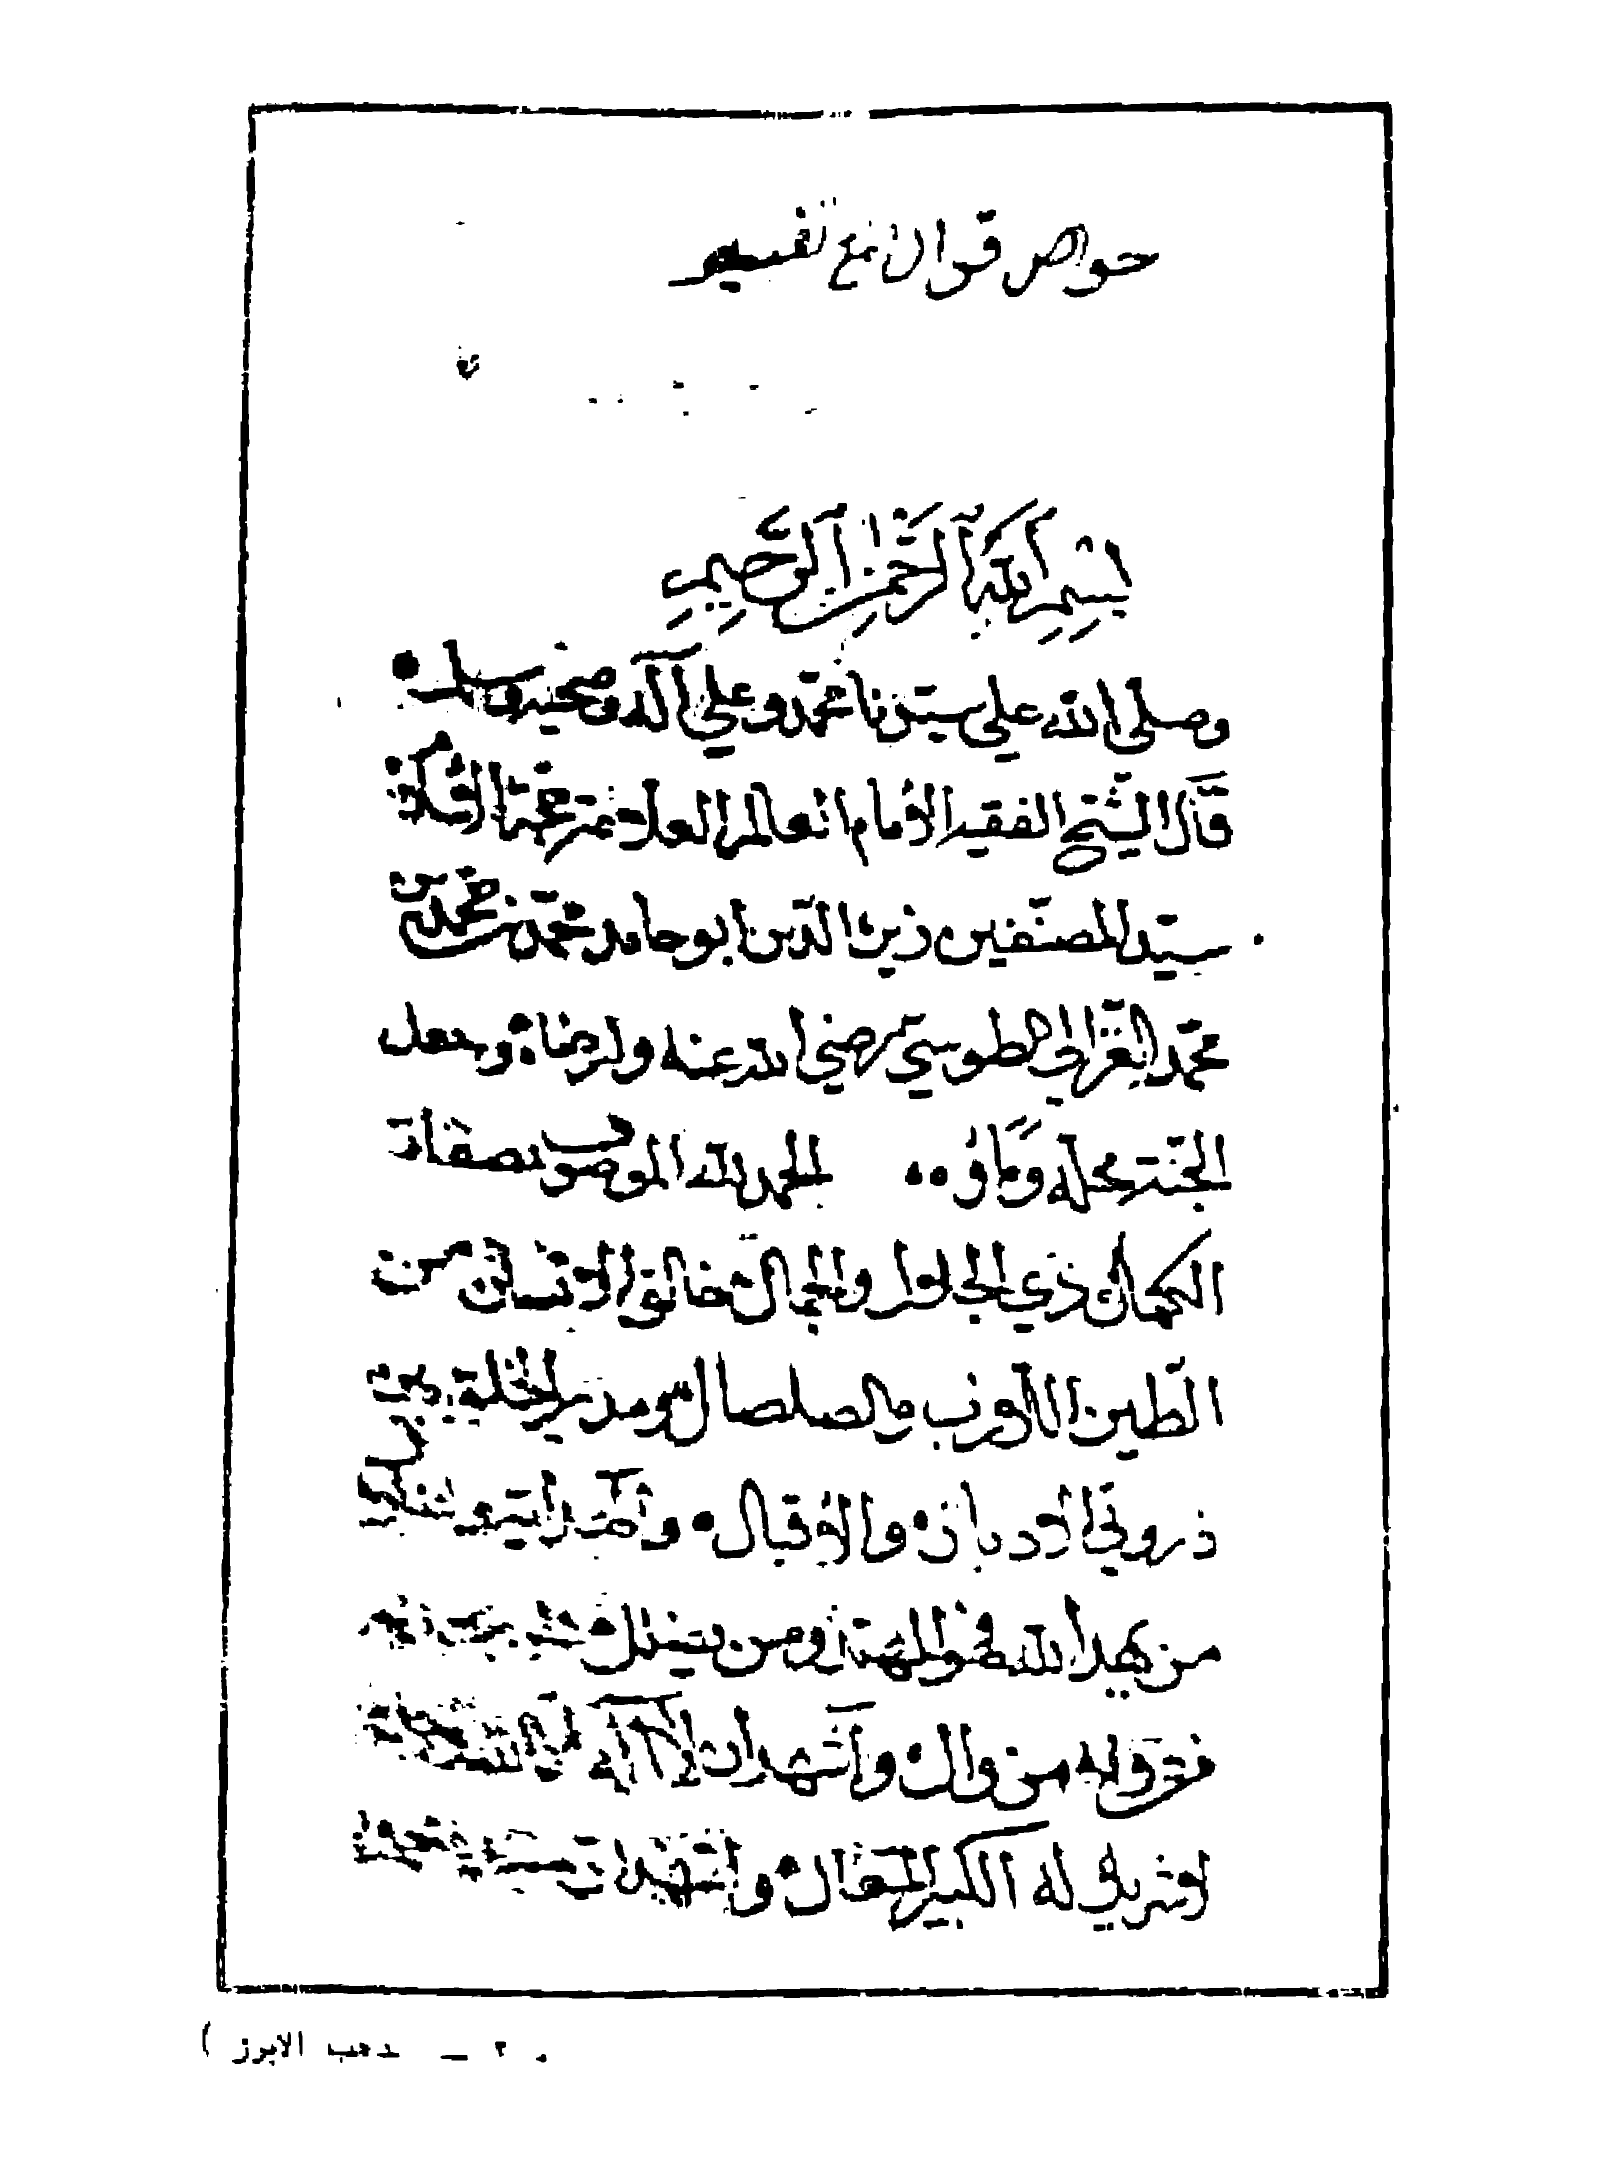 خواص قرآن مع تفسير
بِسْمِ اللَّهِ الرَّحْمٰنِ الرَّحِيمِ
وصلى الله على سيدنا محمد وعلى آله وصحبه وسلم
قال الشيخ الفقيه الامام العالم العلامة حجة
سيد المصنفين زين الدين ابو حامد محمد بن محمد بن
محمد الغزالي الطوسي رضي الله عنه وارضاه وجعل
الجنة محله ومأوه الحمد لله الموصوف بصفات
الكمال ذي الجلال والجمال خالق الانسان من
الطين اللازب من صلصال
ذروتي الادبار والاقبال
من يهد الله فهو المهتد ومن يضلل
من وال واشهد ان لا اله الا الله
لا شريك له الكبير المتعال واشهد ان
٢ – ذهب الابرز )